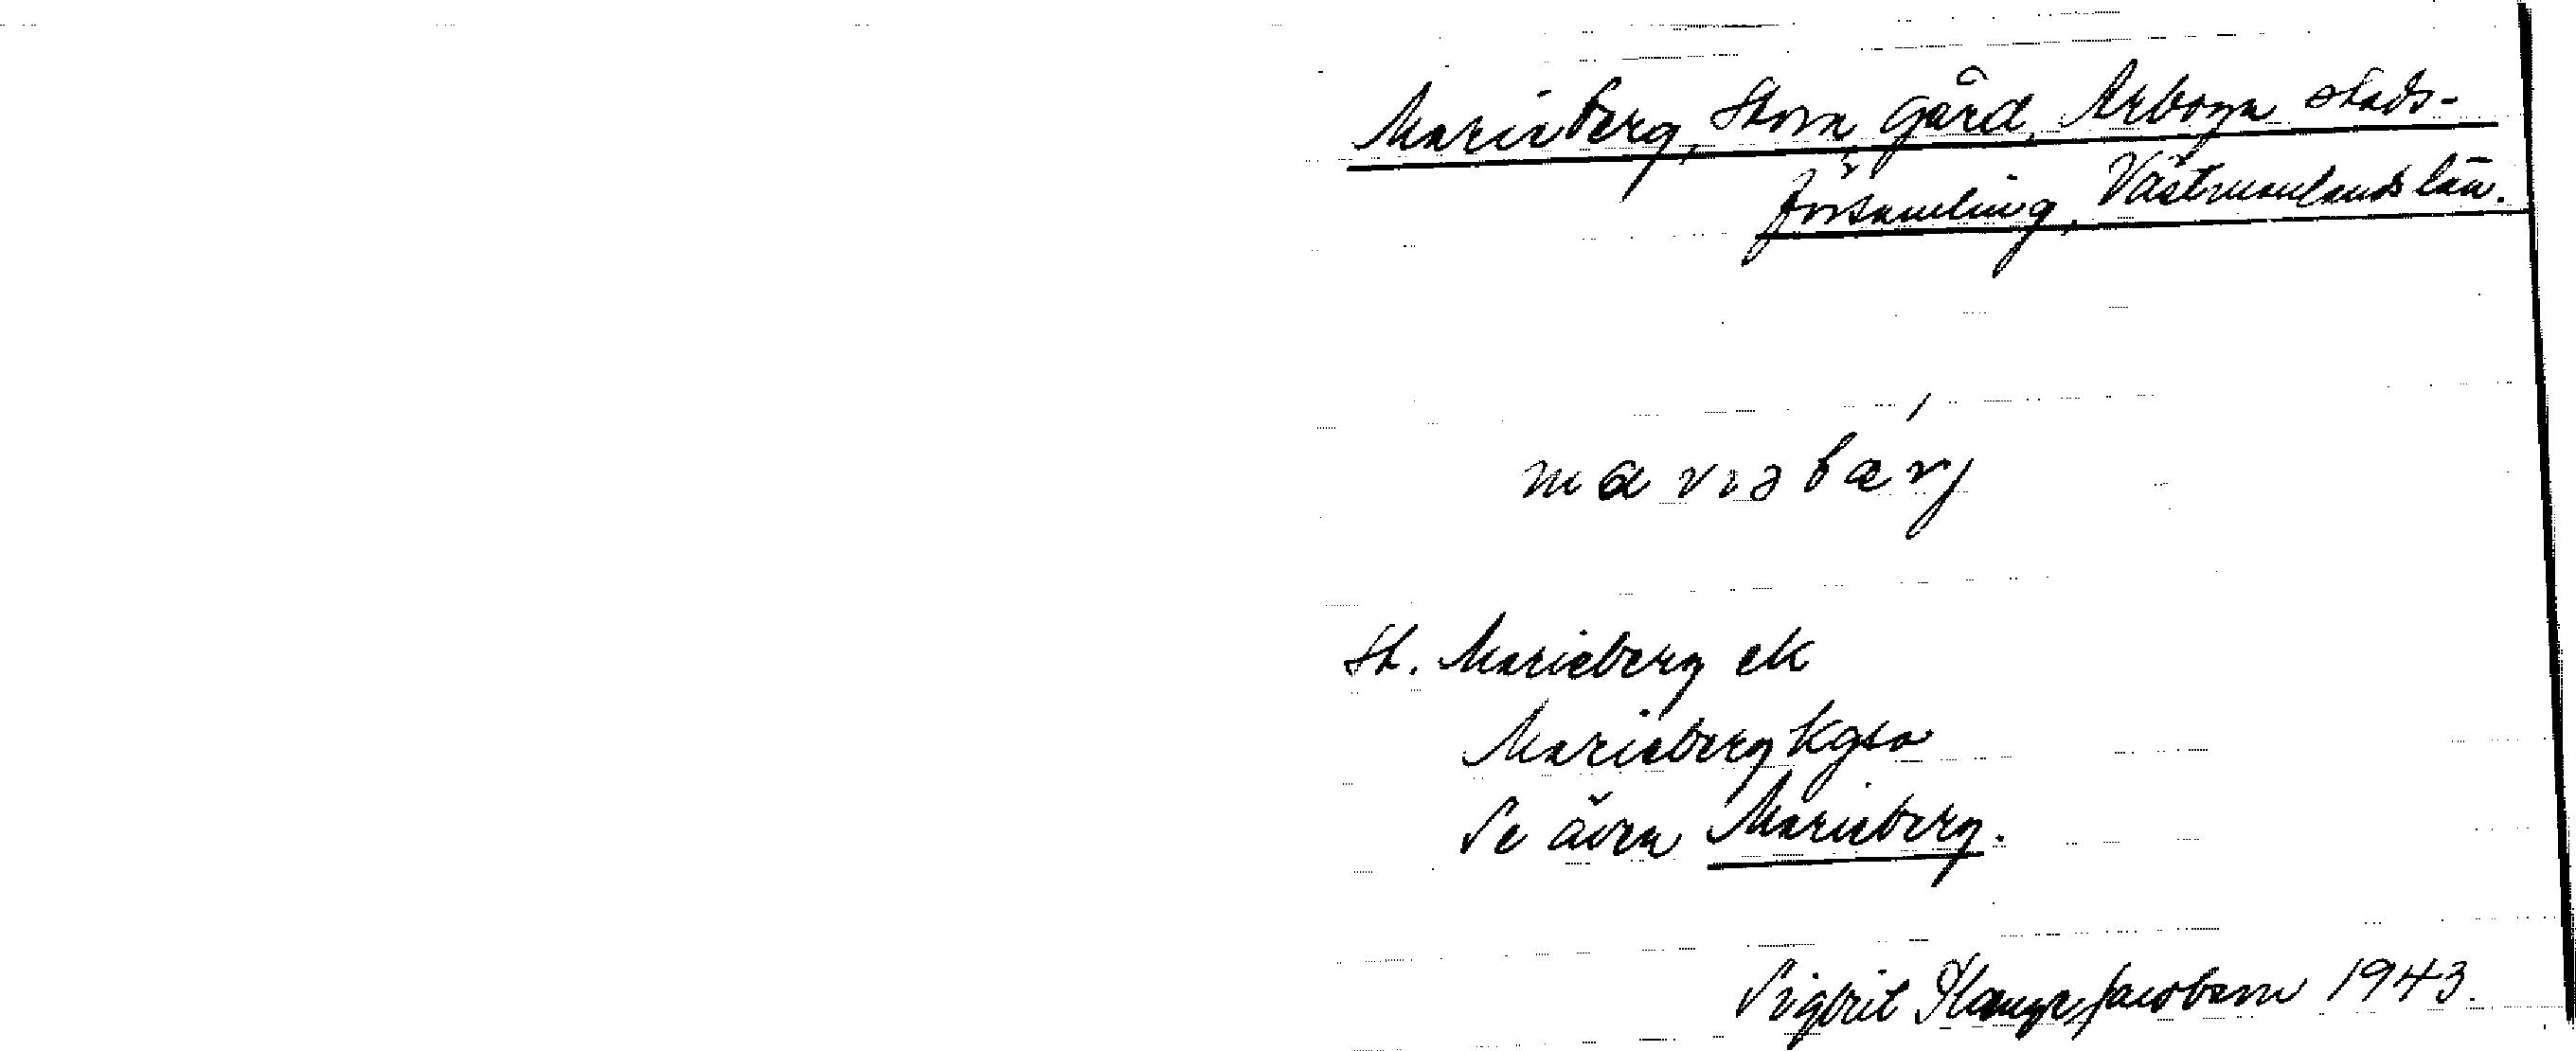 Marieberg, Stora, Gård, Arboga stads-
församling, Västmanlands län.
mariəbærj
St. Marieberg ek
Marieberg Kgso
Se även Marieberg.
Sigbrit Plænge Jacobson 1943.